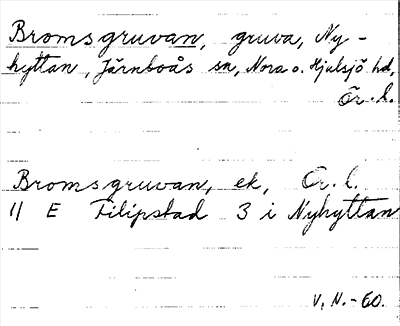 Bromsgruvan, gruva, Ny-
hyttan, Järnboås sn, Nora o. Hjulsjö hd,
Ör. l.
Bromsgruvan, ek, Ör. l.
11 E Filipstad 3 i Nyhyttan
V, N.-60.